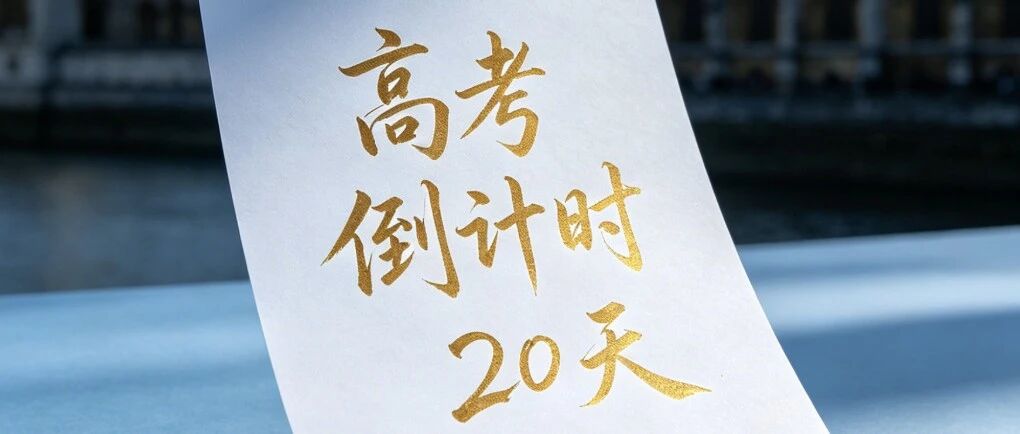 高考
倒计时
20天